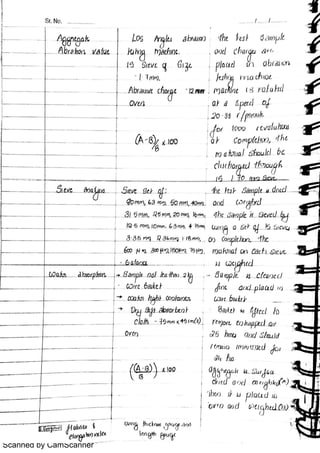 Sr. No.
Aggregate
Abrasion value
Los Angles abrasion
testing machine.
IS Sieve of Size
1.7mm,
Abrasive charge 12
Oven
(A-B)/B x 100
The test sample
and charge are
placed in abrasion
testing machine
machine is rotated
at a speed of
20-33 r/minute
for 1000 revolutions
at completion, the
material should be
discharged through
Sieve Analysis
Sieve Set of:
90mm, 63 mm, 50 mm, 40mm,
31.5mm, 25 mm, 20 mm, 16mm,
12.5 mm, 10mm, 6.3mm, 4.75mm,
3.35 mm, 2.36mm, 1.18mm,
600 µm, 300µm, 150µm, 75µm,
- balance
the test sample is dried
and weighed
the sample is sieved by
using a set of IS Sieves
on completion, the
material on each sieve
is weighed
Water absorption
→ Sample not less than 2kg
wire basket
→ water tight container
→ Dry soft absorbent
cloth - 45mm x 45mm(2)
Oven
(A-B)/B x 100
- Sample is cleaned
fine and placed in
wire basket
Basket is lifted to
remove entrapped air
25 times and should
remain immersed for
24 hrs
aggregate is surface
dried and weighed(A)
then it is placed in
oven and weighed(B)
Flakiness &
elongation index
using thickness gauge and
length gauge
Scanned by CamScanner